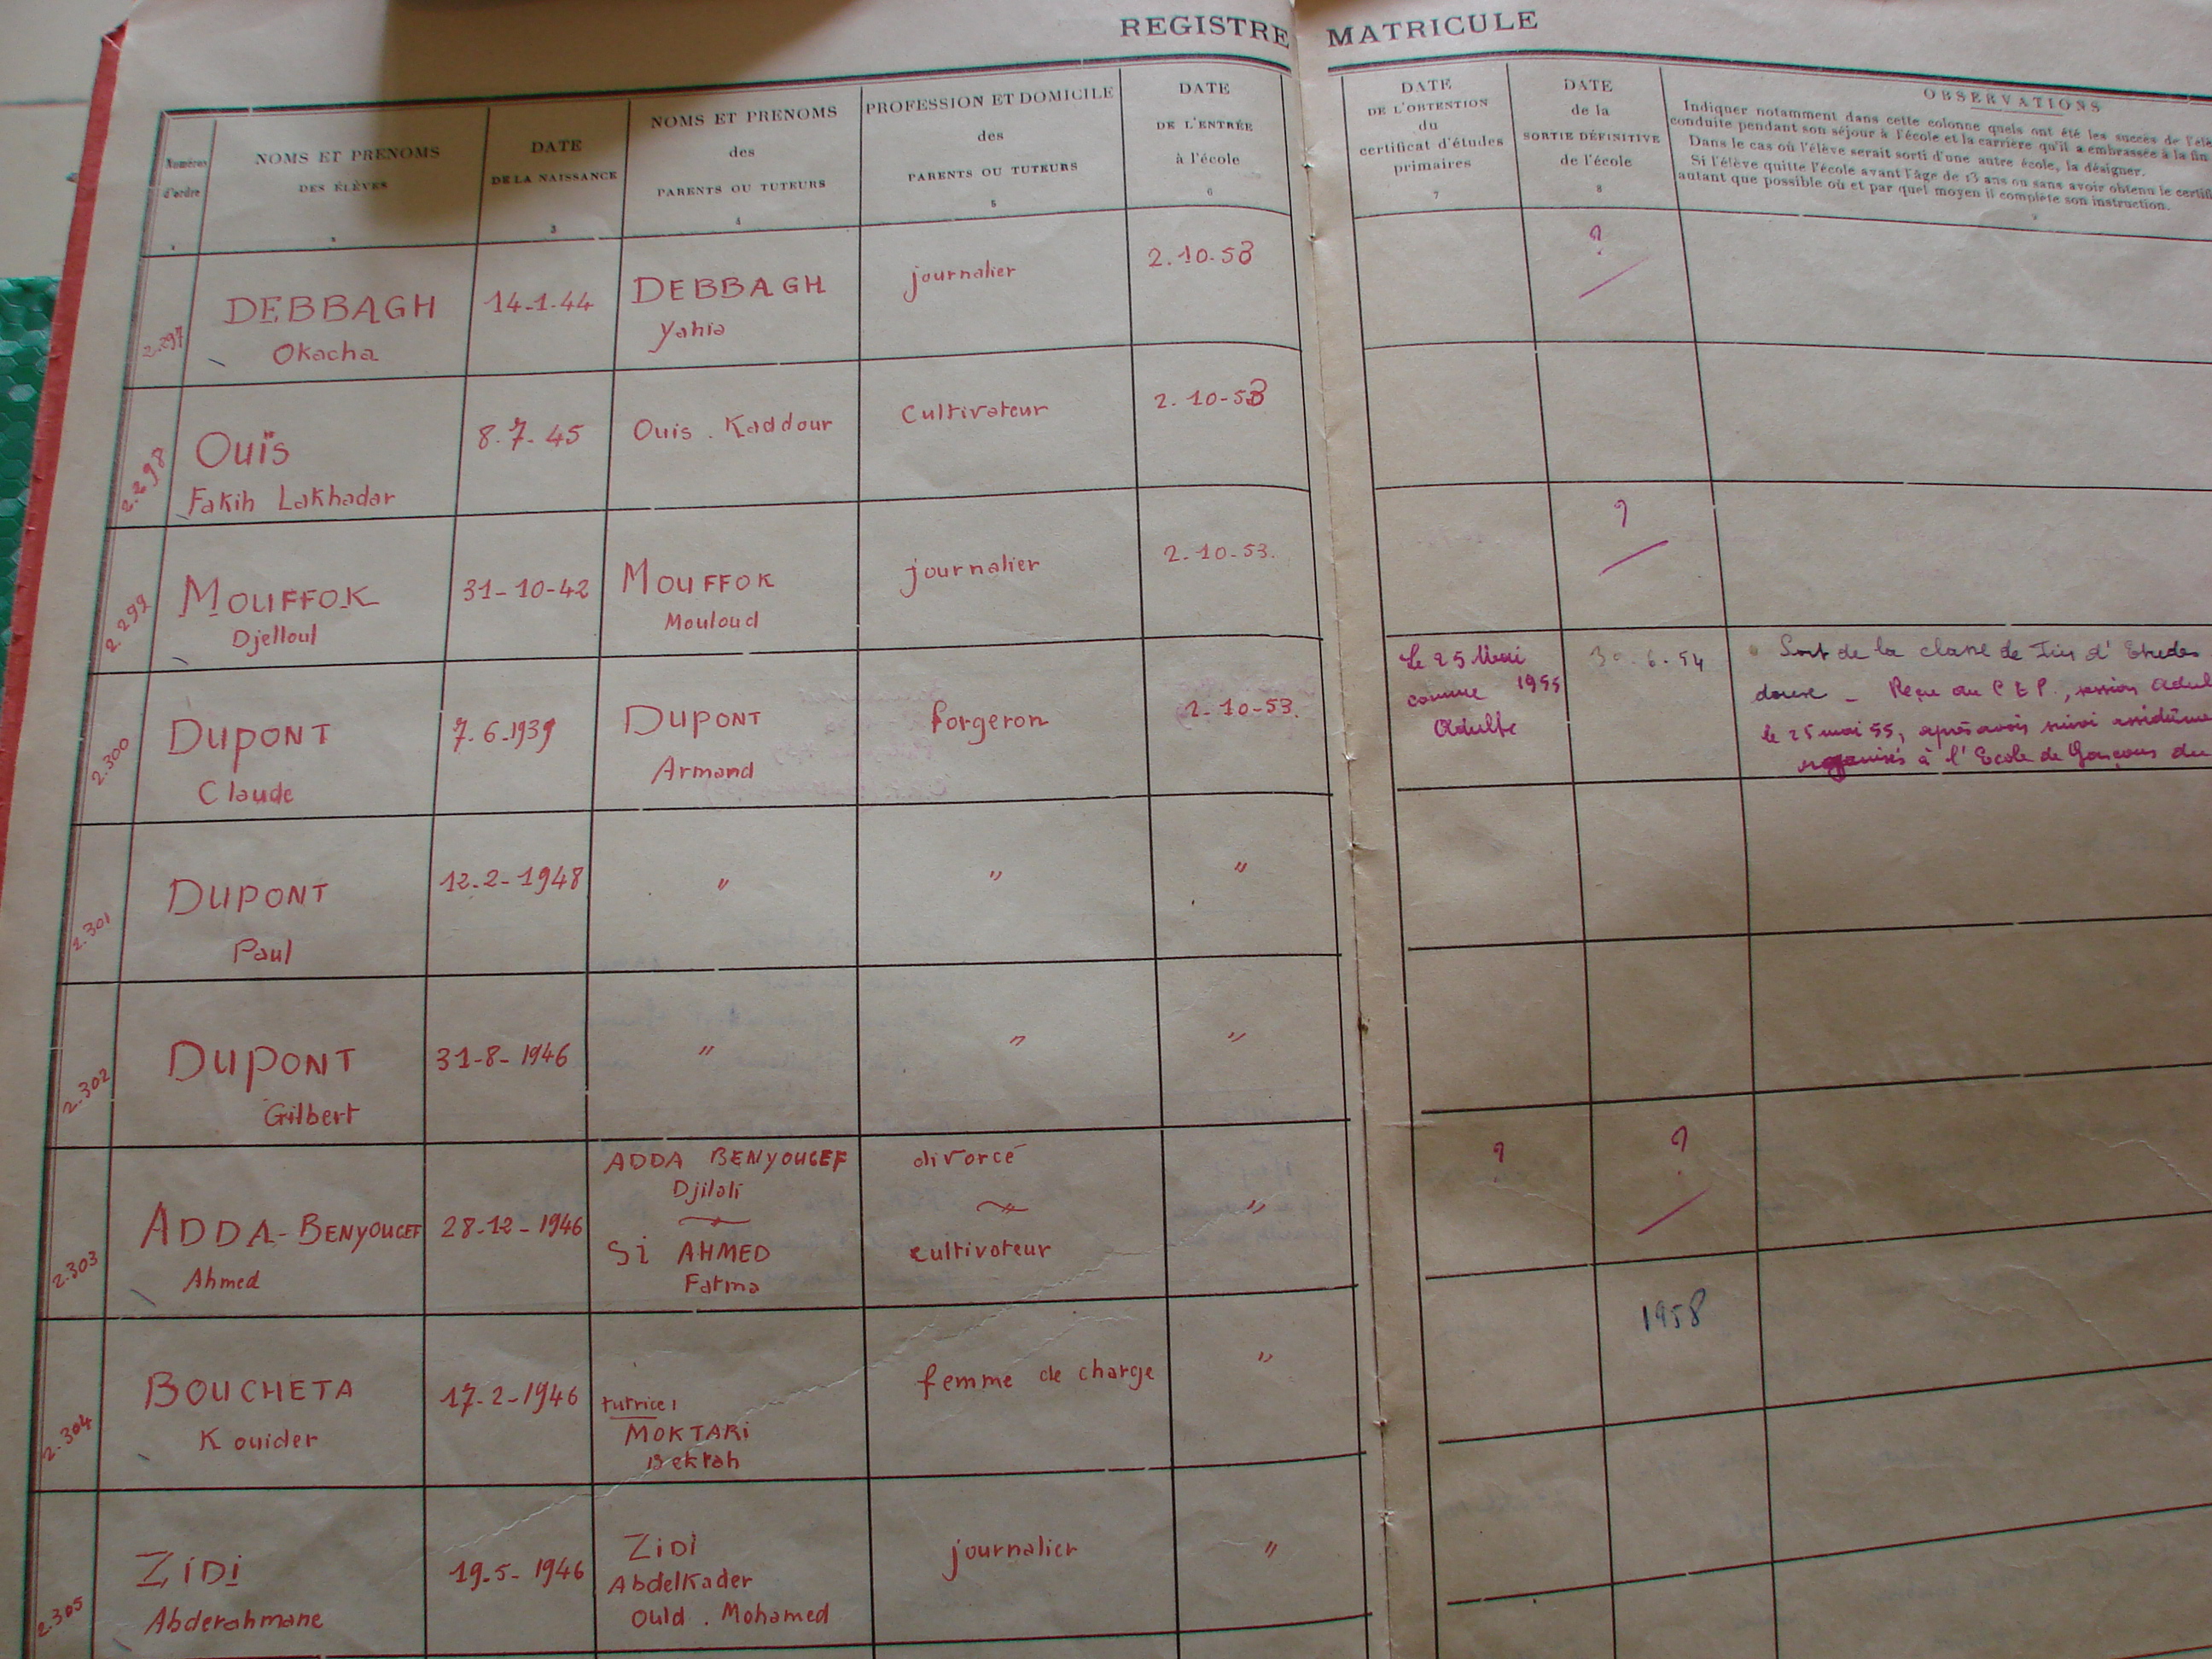 REGISTRE MATRICULE
Numéros
d'ordre
NOMS ET PRENOMS
DES ÉLÈVES
2
DATE
DE LA NAISSANCE
3
NOMS ET PRENOMS
des
PARENTS OU TUTEURS
4
PROFESSION ET DOMICILE
des
PARENTS OU TUTEURS
5
DATE
DE L'ENTRÉE
à l'école
6
DATE
DE L'OBTENTION
du
certificat d'études
primaires
7
DATE
de la
SORTIE DÉFINITIVE
de l'école
8
OBSERVATIONS
Indiquer notamment dans cette colonne quels ont été les succès de l'élè
conduite pendant son séjour à l'école et la carrière qu'il a embrassée à la fin
Dans le cas où l'élève serait sorti d'une autre école, la désigner.
Si l'élève quitte l'école avant l'âge de 13 ans ou sans avoir obtenu le certifi
autant que possible où et par quel moyen il complète son instruction.
2.297
DEBBAGH
Okacha
14-1-44
DEBBAGH
Yahia
journalier
2.10-53
?
2.298
Ouïs
Fakih Lakhadar
8.7.45
Ouis . Kaddour
Cultivateur
2.10-53
2.299
MOUFFOK
Djelloul
31-10-42
MOUFFOK
Mouloud
journalier
2.10-53.
?
2.300
DUPONT
Claude
7.6.1939
DUPONT
Armand
forgeron
2-10-53.
Le 25 Mai
comme 1955
Adulte
30.6.54
Sort de la classe de d'Etudes
Reçu au C E P, session adul
le 25 mai 55, après avoir suivi assidûme
organisés à l'Ecole de Garçons du
2.301
DUPONT
Paul
12.2-1948
"
"
"
2.302
DUPONT
Gilbert
31-8-1946
"
"
"
2.303
ADDA-BENYOUCEF
Ahmed
28-12-1946
ADDA BENYOUCEF
Djilali
Si AHMED
Fatma
divorcé
cultivateur
"
?
?
2.304
BOUCHETA
Kouider
17-2-1946
tutrice:
MOKTARI
Bekrah
femme de charge
"
1958
2.305
ZIDI
Abderahmane
19-5-1946
ZIDI
Abdelkader
Ould . Mohamed
journalier
"